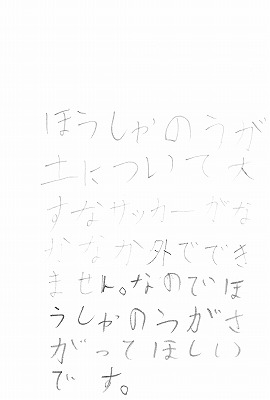 ほうしゃのうが
土について大
すなサッカーがな
かなか外ででき
ません。なのでほ
うしゃのうがさ
がってほしい
です。